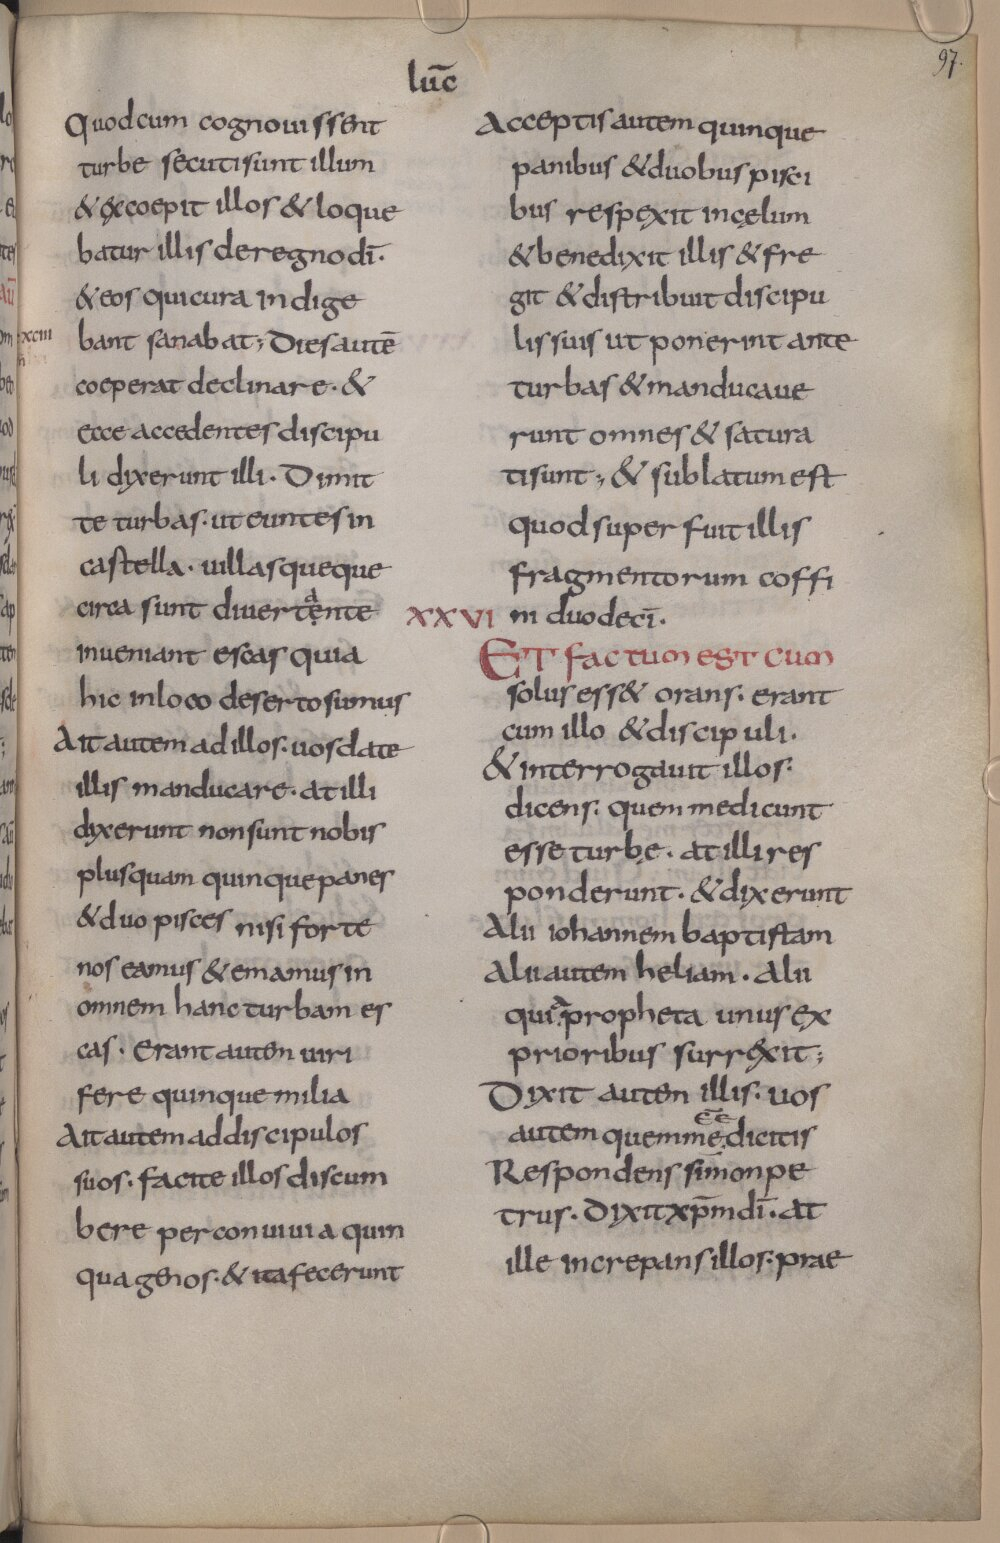 97.
lūc
Quod cum cognouissent
turbe secuti sunt illum
& excoepit illos & loque
batur illis de regno dī.
& eos qui cura indige
xciii
bant sanabat; Dies autē
coeperat declinare. &
ecce accedentes discipu
li dixerunt illi. Dimit
te turbas. ut euntes in
castella. uillasqueque
circa sunt diuertente
inueniant escas quia
hic in loco deserto sumus
Ait autem ad illos. uos date
illis manducare. at illi
dixerunt non sunt nobis
plus quam quinque panes
& duo pisces nisi forte
nos eamus & emamus in
omnem hanc turbam es
cas. Erant autem uiri
fere quinque milia
Ait autem ad discipulos
suos. facite illos discum
bere per conuiuia quin
quagenos. & ita fecerunt
Acceptis autem quinque
panibus & duobus pisci
bus respexit in cęlum
& benedixit illis & fre
git & distribuit discipu
lis suis ut ponerint ante
turbas & manducaue
runt omnes & satura
ti sunt; & sublatum est
quod super fuit illis
fragmentorum coffi
XXVI
ni duodecī.
Et factum est cum
solus ess& orans. erant
cum illo & discipuli.
& interrogauit illos.
dicens. quem me dicunt
esse turbę. at illi res
ponderunt. & dixerunt
Alii iohannem baptistam
Alii autem heliam. Alii
quia propheta unus ex
prioribus surrexit;
Dixit autem illis. uos
autem quem me eē dicitis
Respondens simon pe
trus. Dixit xp̄m dī. at
ille increpans illos. prae